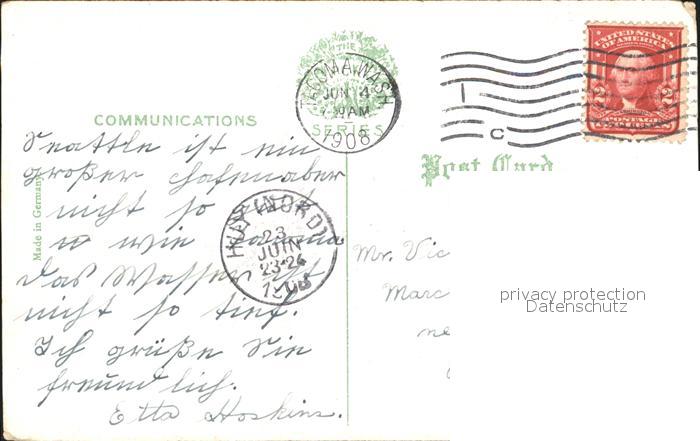 THE
SERIES
TACOMA, WASH.
JUN 4
AM
1908
UNITED STATES
OF AMERICA
2 2
POSTAGE
C
COMMUNICATIONS
Post Card
Made in Germany
Seattle ist ein
großer Hafen aber
nicht so
wie Tacoma
das Wasser ist
nicht so tief.
Ich grüße Sie
freundlich.
Etta Hoskins.
(NORD)
23
JUIN
23-24
1908
Mr. Vic
Marc
privacy protection
Datenschutz